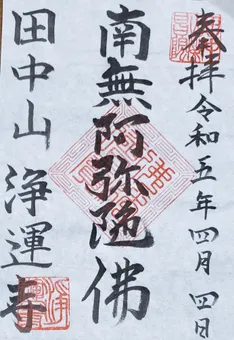 奉拝 令和五年四月四日
南無阿弥陀佛
田中山 浄運寺